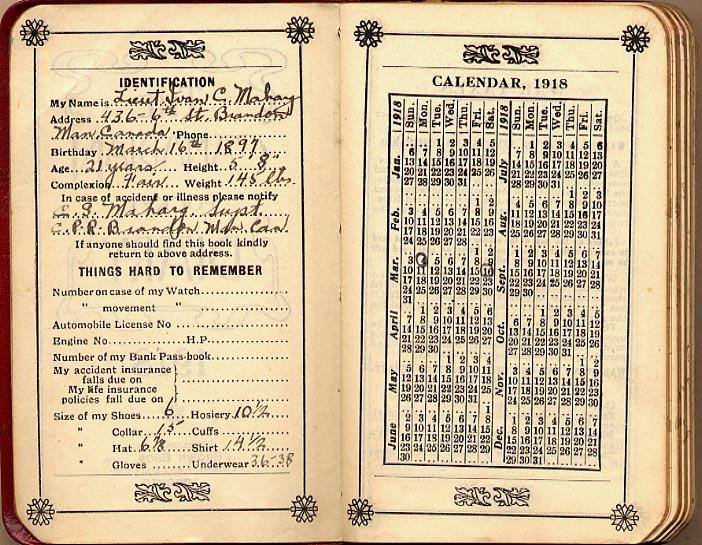 IDENTIFICATION
My Name is Lieut Ivan C. Maharg
Address 436-6th St. Brandon
Man. Canada Phone
Birthday March 16th 1897
Age 21 years Height 5' 8"
Complexion Fair Weight 145 lbs
In case of accident or illness please notify
Maharg Supt.
C.P.R. Brandon Man. Can.
If anyone should find this book kindly
return to above address.
THINGS HARD TO REMEMBER
Number on case of my Watch
" movement "
Automobile License No
Engine No. H.P.
Number of my Bank Pass-book
My accident insurance
falls due on
My life insurance
policies fall due on
Size of my Shoes 6 Hosiery 10½
" Collar 15 Cuffs
" Hat 6⅞ Shirt 14½
" Gloves Underwear 36-38
CALENDAR, 1918
1918 Sun. Mon. Tue. Wed. Thu. Fri. Sat. 1918 Sun. Mon. Tue. Wed. Thu. Fri. Sat.
Jan. 1 2 3 4 5 July 1 2 3 4 5 6
6 7 8 9 10 11 12 7 8 9 10 11 12 13
13 14 15 16 17 18 19 14 15 16 17 18 19 20
20 21 22 23 24 25 26 21 22 23 24 25 26 27
27 28 29 30 31 28 29 30 31
Feb. 1 2 Aug. 1 2 3
3 4 5 6 7 8 9 4 5 6 7 8 9 10
10 11 12 13 14 15 16 11 12 13 14 15 16 17
17 18 19 20 21 22 23 18 19 20 21 22 23 24
24 25 26 27 28 25 26 27 28 29 30 31
Mar. 1 2 Sept. 1 2 3 4 5 6 7
3 4 5 6 7 8 9 8 9 10 11 12 13 14
10 11 12 13 14 15 16 15 16 17 18 19 20 21
17 18 19 20 21 22 23 22 23 24 25 26 27 28
24 25 26 27 28 29 30 29 30
31
April 1 2 3 4 5 6 Oct. 1 2 3 4 5
7 8 9 10 11 12 13 6 7 8 9 10 11 12
14 15 16 17 18 19 20 13 14 15 16 17 18 19
21 22 23 24 25 26 27 20 21 22 23 24 25 26
28 29 30 27 28 29 30 31
May 1 2 3 4 Nov. 1 2
5 6 7 8 9 10 11 3 4 5 6 7 8 9
12 13 14 15 16 17 18 10 11 12 13 14 15 16
19 20 21 22 23 24 25 17 18 19 20 21 22 23
26 27 28 29 30 31 24 25 26 27 28 29 30
June 1 Dec. 1 2 3 4 5 6 7
2 3 4 5 6 7 8 8 9 10 11 12 13 14
9 10 11 12 13 14 15 15 16 17 18 19 20 21
16 17 18 19 20 21 22 22 23 24 25 26 27 28
23 24 25 26 27 28 29 29 30 31
30